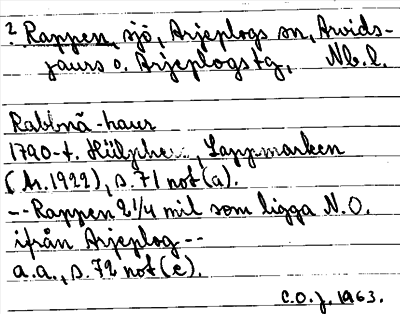 ? Rappen, sjö, Arjeplogs sn, Arvids-
jaurs o. Arjeplogs tg, Nb.l.
Rabbnã-haur
1790-t. , Lappmarken
(tr.1922), s. 71 not (a).
--Rappen 2 1/4 mil som ligga N.O.
ifrån Arjeplog--
a.a., s. 72 not (e).
C.O.J. 1963.